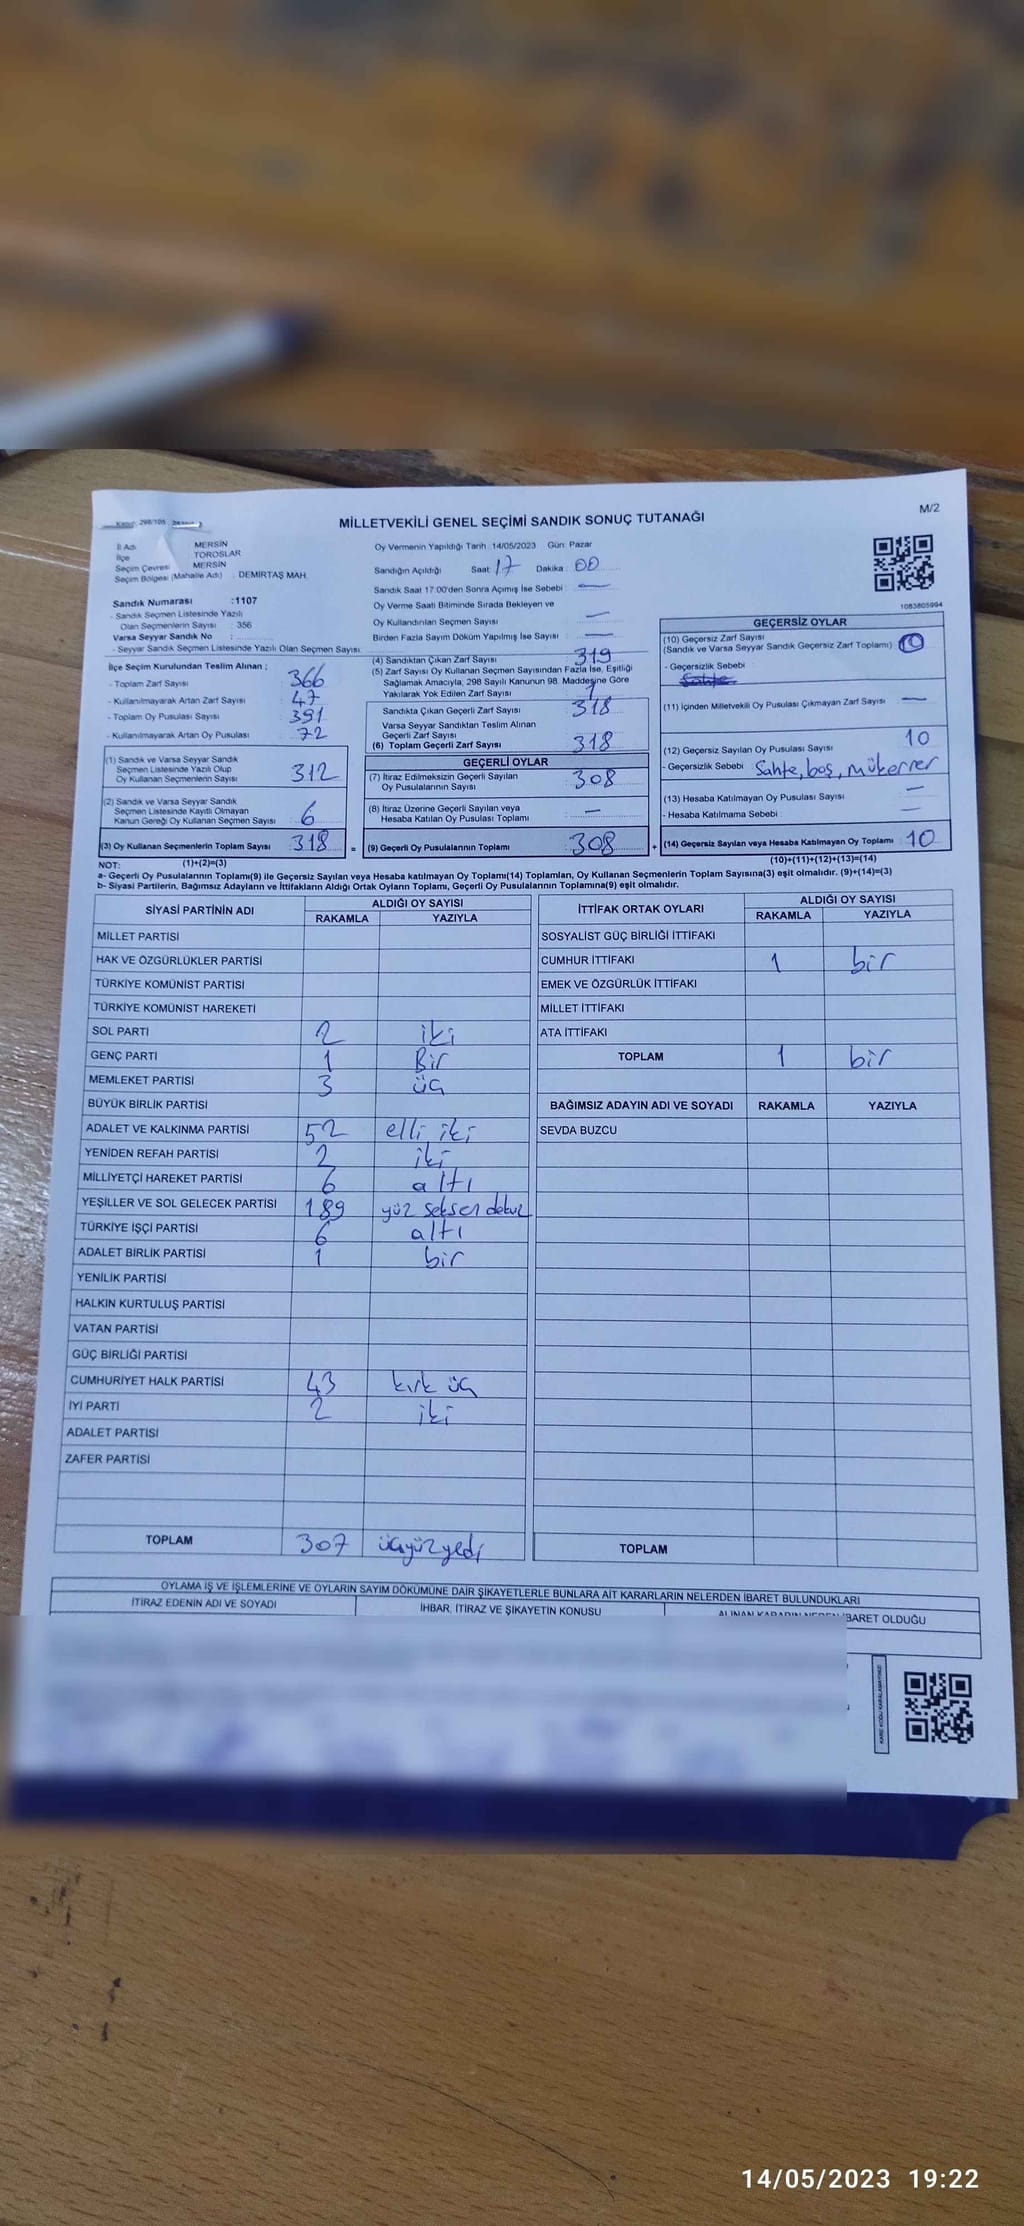 Kanun: 298/105
MİLLETVEKİLİ GENEL SEÇİMİ SANDIK SONUÇ TUTANAĞI
M/2
İl Adı : MERSİN
İlçe : TOROSLAR
Seçim Çevresi : MERSİN
Seçim Bölgesi (Mahalle Adı) : DEMİRTAŞ MAH.
Sandık Numarası :1107
- Sandık Seçmen Listesinde Yazılı
Olan Seçmenlerin Sayısı : 356
Varsa Seyyar Sandık No :
- Seyyar Sandık Seçmen Listesinde Yazılı Olan Seçmen Sayısı
Oy Vermenin Yapıldığı Tarih : 14/05/2023 Gün: Pazar
Sandığın Açıldığı Saat : 17 Dakika : 00
Sandık Saat 17:00'den Sonra Açımış İse Sebebi : —
Oy Verme Saati Bitiminde Sırada Bekleyen ve
Oy Kullandırılan Seçmen Sayısı : —
Birden Fazla Sayım Döküm Yapılmış İse Sayısı : —
1083805994
İlçe Seçim Kurulundan Teslim Alınan ;
- Toplam Zarf Sayısı : 366
- Kullanılmayarak Artan Zarf Sayısı : 47
- Toplam Oy Pusulası Sayısı : 391
- Kullanılmayarak Artan Oy Pusulası : 72
(1) Sandık ve Varsa Seyyar Sandık
Seçmen Listesinde Yazılı Olup
Oy Kullanan Seçmenlerin Sayısı : 312
(2) Sandık ve Varsa Seyyar Sandık
Seçmen Listesinde Kayıtlı Olmayan
Kanun Gereği Oy Kullanan Seçmen Sayısı : 6
(3) Oy Kullanan Seçmenlerin Toplam Sayısı : 318 =
(4) Sandıktan Çıkan Zarf Sayısı : 319
(5) Zarf Sayısı Oy Kullanan Seçmen Sayısından Fazla İse, Eşitliği
Sağlamak Amacıyla, 298 Sayılı Kanunun 98. Maddesine Göre
Yakılarak Yok Edilen Zarf Sayısı : 1
Sandıkta Çıkan Geçerli Zarf Sayısı : 318
Varsa Seyyar Sandıktan Teslim Alınan
Geçerli Zarf Sayısı :
(6) Toplam Geçerli Zarf Sayısı : 318
GEÇERLİ OYLAR
(7) İtiraz Edilmeksizin Geçerli Sayılan
Oy Pusulalarının Sayısı : 308
(8) İtiraz Üzerine Geçerli Sayılan veya
Hesaba Katılan Oy Pusulası Toplamı : —
(9) Geçerli Oy Pusulalarının Toplamı : 308 +
GEÇERSİZ OYLAR
(10) Geçersiz Zarf Sayısı
(Sandık ve Varsa Seyyar Sandık Geçersiz Zarf Toplamı) :
- Geçersizlik Sebebi :
Sahte
(11) İçinden Milletvekili Oy Pusulası Çıkmayan Zarf Sayısı : —
(12) Geçersiz Sayılan Oy Pusulası Sayısı : 10
- Geçersizlik Sebebi : Sahte, boş, mükerrer
(13) Hesaba Katılmayan Oy Pusulası Sayısı : —
- Hesaba Katılmama Sebebi : —
(14) Geçersiz Sayılan veya Hesaba Katılmayan Oy Toplamı : 10
NOT: (1)+(2)=(3) (10)+(11)+(12)+(13)=(14)
a- Geçerli Oy Pusulalarının Toplamı(9) ile Geçersiz Sayılan veya Hesaba katılmayan Oy Toplamı(14) Toplamları, Oy Kullanan Seçmenlerin Toplam Sayısına(3) eşit olmalıdır. (9)+(14)=(3)
b- Siyasi Partilerin, Bağımsız Adayların ve İttifakların Aldığı Ortak Oyların Toplamı, Geçerli Oy Pusulalarının Toplamına(9) eşit olmalıdır.
SİYASİ PARTİNİN ADI ALDIĞI OY SAYISI
RAKAMLA YAZIYLA
MİLLET PARTİSİ
HAK VE ÖZGÜRLÜKLER PARTİSİ
TÜRKİYE KOMÜNİST PARTİSİ
TÜRKİYE KOMÜNİST HAREKETİ
SOL PARTİ 2 iki
GENÇ PARTİ 1 Bir
MEMLEKET PARTİSİ 3 üç
BÜYÜK BİRLİK PARTİSİ
ADALET VE KALKINMA PARTİSİ 52 elli iki
YENİDEN REFAH PARTİSİ 2 iki
MİLLİYETÇİ HAREKET PARTİSİ 6 altı
YEŞİLLER VE SOL GELECEK PARTİSİ 189 yüz seksen dokuz
TÜRKİYE İŞÇİ PARTİSİ 6 altı
ADALET BİRLİK PARTİSİ 1 bir
YENİLİK PARTİSİ
HALKIN KURTULUŞ PARTİSİ
VATAN PARTİSİ
GÜÇ BİRLİĞİ PARTİSİ
CUMHURİYET HALK PARTİSİ 43 kırk üç
İYİ PARTİ 2 iki
ADALET PARTİSİ
ZAFER PARTİSİ
TOPLAM 307 üçyüzyedi
İTTİFAK ORTAK OYLARI ALDIĞI OY SAYISI
RAKAMLA YAZIYLA
SOSYALİST GÜÇ BİRLİĞİ İTTİFAKI
CUMHUR İTTİFAKI 1 bir
EMEK VE ÖZGÜRLÜK İTTİFAKI
MİLLET İTTİFAKI
ATA İTTİFAKI
TOPLAM 1 bir
BAĞIMSIZ ADAYIN ADI VE SOYADI RAKAMLA YAZIYLA
SEVDA BUZCU
TOPLAM
OYLAMA İŞ VE İŞLEMLERİNE VE OYLARIN SAYIM DÖKÜMÜNE DAİR ŞİKAYETLERLE BUNLARA AİT KARARLARIN NELERDEN İBARET BULUNDUKLARI
İTİRAZ EDENİN ADI VE SOYADI İHBAR, İTİRAZ VE ŞİKAYETİN KONUSU ALINAN KARARIN NEDEN İBARET OLDUĞU
KARE KODU KARALAMAYINIZ!
14/05/2023 19:22